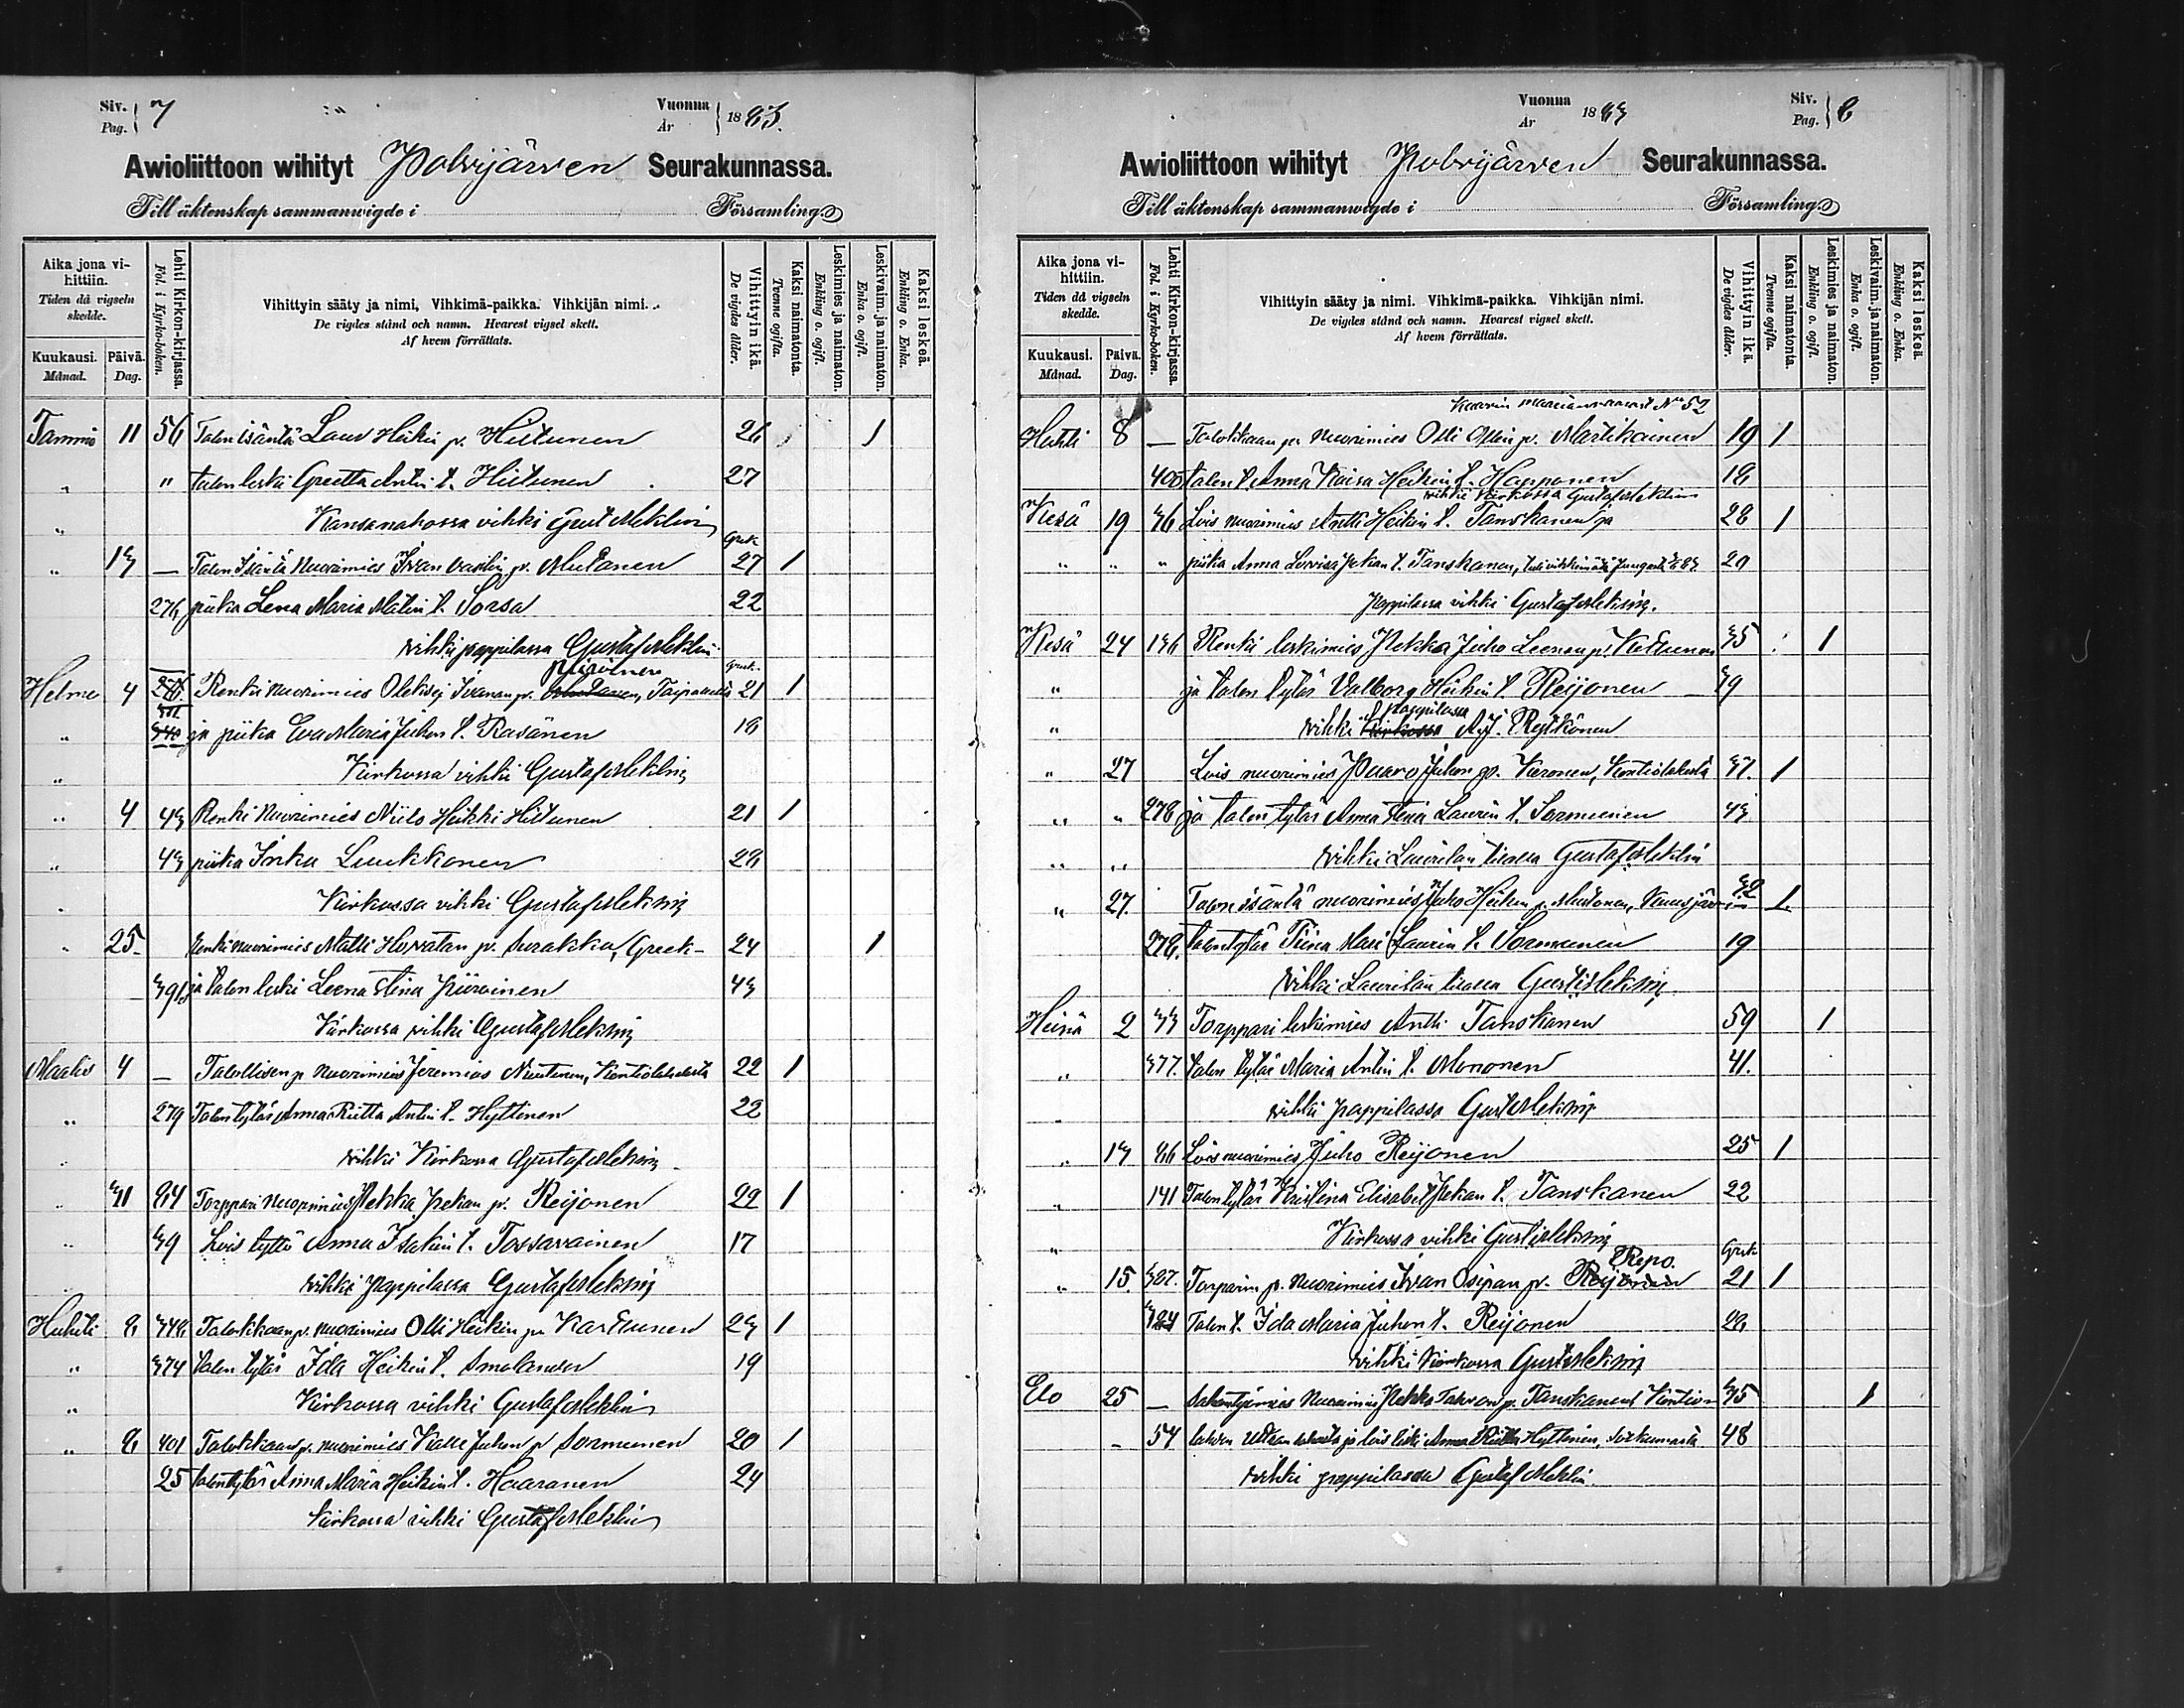 Siv. Pag. 7
Vuonna År 1883.
Awioliittoon wihityt Polvijärven Seurakunnassa.
Till äktenskap sammanwigde i Församling.
Aika jona vihittiin. Tiden då vigseln skedde.
Kuukausi. Månad.
Päivä. Dag.
Lehti Kirkon-kirjassa. Fol. i Kyrko-boken.
Vihittyin sääty ja nimi, Vihkimä-paikka. Vihkijän nimi.
De vigdes stånd och namn. Hvarest vigsel skett.
Af hvem förrättats.
Vihittyin ikä. De vigdes ålder.
Kaksi naimatonta. Tvenne ogifta.
Leskimies ja naimaton. Enkling o. ogift.
Leskivaim. ja naimaton. Enka o. ogift.
Kaksi leskeä. Enkling o. Enka.
Tammi 11 56 Talon isäntä Lauri Heikin p. Hiltunen 26 1
" " talon leski Greetta Antin t. Hiltunen 27
" vihki Gust Meklin
Grek
" 13 — Talon Isäntä nuorimies Iwan Vasilin p. Mutanen 27 1
276 piika Lena Maria Matin t. Sorsa 22
vihki pappilassa Gustaf Meklin
Piiroinen Grek.
Helme 4 Renki nuorimies Oleksej Iwanan p. 21 1
" ja piika Eva Maria Juhon t. Räsänen 18
" Kirkossa vihki Gustaf Meklin
" 4 43 Renki nuorimies Niilo Heikki Hiltunen 21 1
" 43 piika Inka Luukkonen 28
Kirkossa vihki Gustaf Meklin
" 25. Renki nuorimies Matti p. Surakka, Greek- 24 1
391 ja talon leski Leena Stina Piiroinen 43
Kirkossa vihki Gustaf Meklin
Maalis 4 — Talollisen p. nuorimies Jeremias Nuutinen, Kontiolahdesta 22 1
" 279 Talon tytär Anna Riitta Antin t. Hyttinen 22
vihki Kirkossa Gustaf Meklin
" 31 84 Torppari nuorimies Pekka Pekan p. Reijonen 22 1
" 39 Lois tyttö Anna Isakin t. Tossavainen 17
vihki Pappilassa Gustaf Meklin
Huhti 8 348 Talokkaan p. nuorimies Olli Heikin p. Karttunen 23 1
" 374 talon tytär Ida Heikin t. Smolander 19
" Kirkossa vihki Gustaf Meklin
" 8 401 Talokkaan p. nuorimies Kalle Juhon p Sormunen 20 1
25 talon tytär Anna Maria Heikin t. Haaranen 24
Kirkossa vihki Gustaf Meklin
Vuonna År 1883
Siv. Pag. 8
Awioliittoon wihityt Polvijärven Seurakunnassa.
Till äktenskap sammanwigde i Församling.
Aika jona vihittiin. Tiden då vigseln skedde.
Kuukausi. Månad.
Päivä. Dag.
Lehti Kirkon-kirjassa. Fol. i Kyrko-boken.
Vihittyin sääty ja nimi. Vihkimä-paikka. Vihkijän nimi.
De vigdes stånd och namn. Hvarest vigsel skett.
Af hvem förrättats.
Vihittyin ikä. De vigdes ålder.
Kaksi naimatonta. Tvenne ogifta.
Leskimies ja naimaton. Enkling o. ogift.
Leskivaim. ja naimaton. Enka o. ogift.
Kaksi leskeä. Enkling o. Enka.
No 52
Huhti 8 — Talokkaan p. nuorimies Olli Ollin p. Martikainen 19 1
405 talon t. Anna Kaisa Heikin t. Happonen 18
vihki Kirkossa Gustaf Meklin
Kesä 19 36 Lois nuorimies Antti Heikin Tanskanen ja 28 1
" " " piika Anna Lovisa Pekan t. Tanskanen, 20
Pappilassa vihki Gustaf Meklin.
Kesä 24 136 Renki leskimies Pekka Juho Leenan p. Kettunen 35 1
" ja talon tytär Valborg Heikin t. Reijonen 39
" vihki pappilassa A.J. Rytkönen
" 27 Lois nuorimies Paavo Juhon p. Karonen, Kontiolahdesta 37. 1
" " 278 ja talon tytär Anna Stina Laurin t. Sormunen 43
" " vihki Laurilan Gustaf Meklin
" 27. Talon isäntä nuorimies Juho Heikin p. Mustonen, Kuusjär 32 1.
278. talon tytär Tiina Mari Laurin t. Sormunen 19
vihki Laurilan Gust Meklin
Heinä 2 33 Torppari leskimies Antti Tanskanen 59 1
" 377. talon tytär Maria Antin t. Mononen 41.
vihki pappilassa Gust Meklin
" 13 86 Lois nuorimies Juho Reijonen 25 1
" 141 Talon tytär Kristina Elisabet Pekan t. Tanskanen 22
" Kirkossa vihki Gust Meklin
Repo. Grek
" 15. 327. Torparin p. nuorimies Iwan Osipan p. Reijonen 21 1
324 Talon t. Ida Maria Juhon t. Reijonen 28
vihki Kirkossa Gust Meklin
Elo 25 — nuorimies Pekka p. Tanskanen 35 1
54 ja lois leski Anna Riitta Hyttinen, 48
vihki pappilassa Gustaf Meklin.